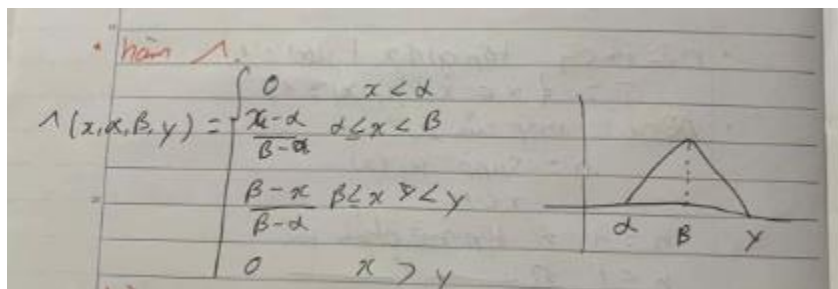 • hàm Λ.
0 x < α
Λ(x,α,β,γ) = { x-α / β-α α ≤ x < β
β-x / β-α β ≤ x < γ
0 x > γ
α β γ